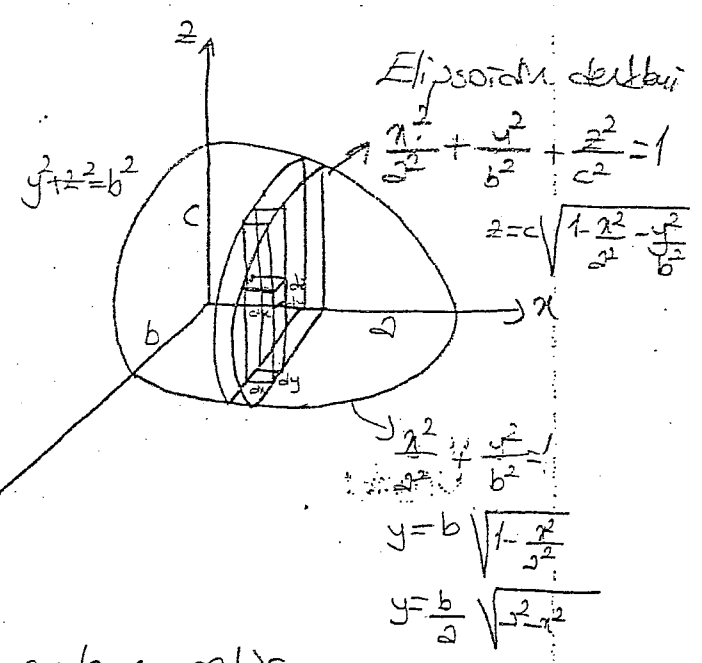 z
Elipsoidin denklemi
x²/a² + y²/b² + z²/c² = 1
y²+z²=b²
c
z=c√(1-x²/a²-y²/b²)
dz
dx
x
a
b
dx dy
x²/a² + y²/b² = 1
y=b√(1-x²/a²)
y=b/a √(a²-x²)